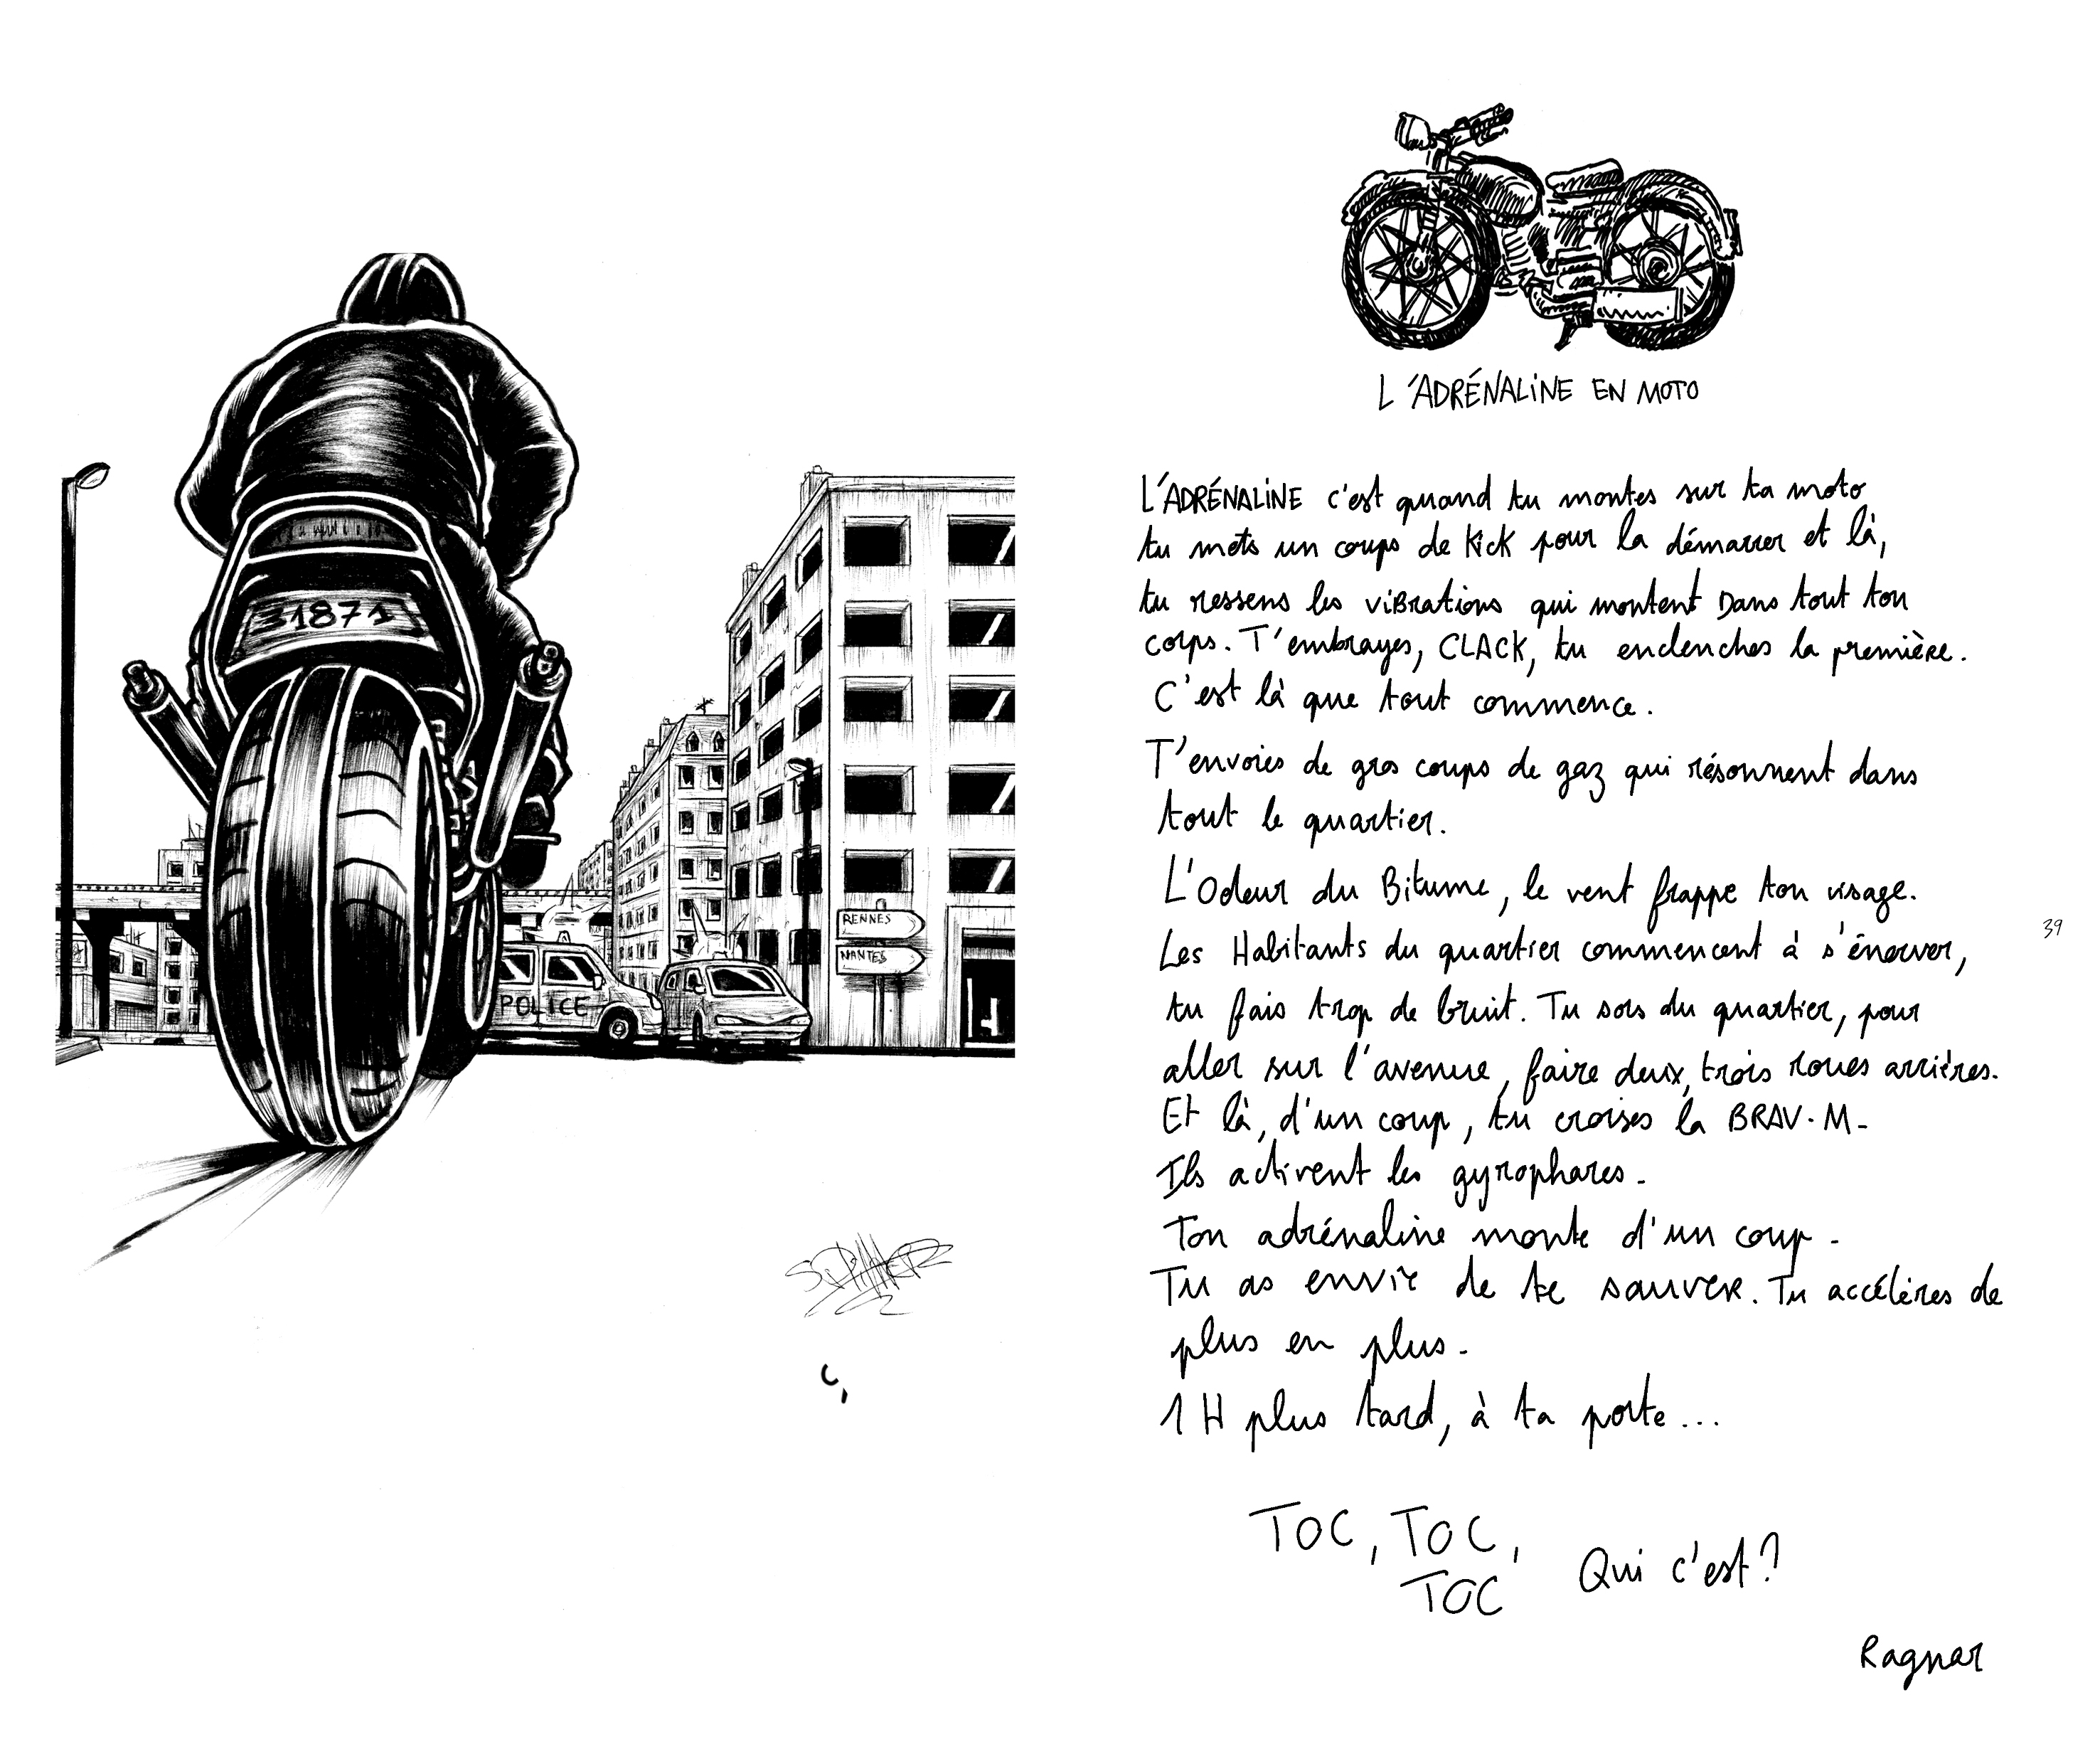 31871
POLICE
RENNES
NANTES
L'ADRÉNALINE EN MOTO
L'ADRÉNALINE c'est quand tu montes sur ta moto
tu mets un coups de kick pour la démarrer et là,
tu ressens les vibrations qui montent Dans tout ton
corps. T'embrayes, CLACK, tu enclenches la première.
C'est là que tout commence.
T'envoies de gros coups de gaz qui résonnent dans
tout le quartier.
L'Odeur du Bitume, le vent frappe ton visage.
Les Habitants du quartier commencent à s'énerver,
tu fais trop de bruit. Tu sors du quartier, pour
aller sur l'avenue, faire deux, trois roues arrières.
Et là, d'un coup, tu croises la BRAV-M.
Ils activent les gyrophares.
Ton adrénaline monte d'un coup.
Tu as envie de te sauver. Tu accélères de
plus en plus.
1H plus tard, à ta porte...
TOC, TOC,
TOC Qui c'est?
Ragnar
39